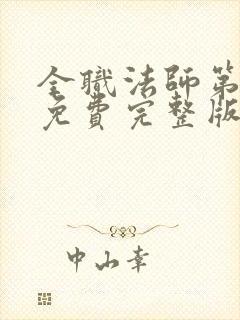 全職法師第
免費完整版
中山幸